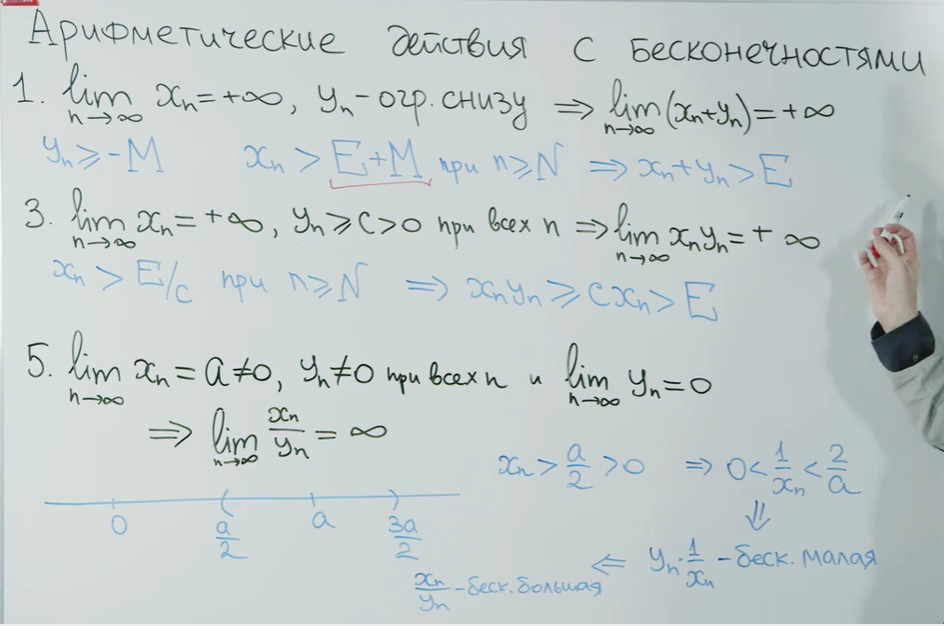 Арифметические действия с бесконечностями
1. lim n→∞ xn = +∞, yn - огр. снизу ⇒ lim n→∞ (xn+yn) = +∞
yn ≥ -M xn > E+M при n ≥ N ⇒ xn + yn > E
3. lim n→∞ xn = +∞, yn ≥ c > 0 при всех n ⇒ lim n→∞ xnyn = +∞
xn > E/c при n ≥ N ⇒ xnyn ≥ cxn > E
5. lim n→∞ xn = a ≠ 0, yn ≠ 0 при всех n и lim n→∞ yn = 0
⇒ lim n→∞ xn/yn = ∞
xn > a/2 > 0 ⇒ 0 < 1/xn < 2/a
0 a/2 a 3a/2
⇓
xn/yn - беск. большая ⇐ yn · 1/xn - беск. малая